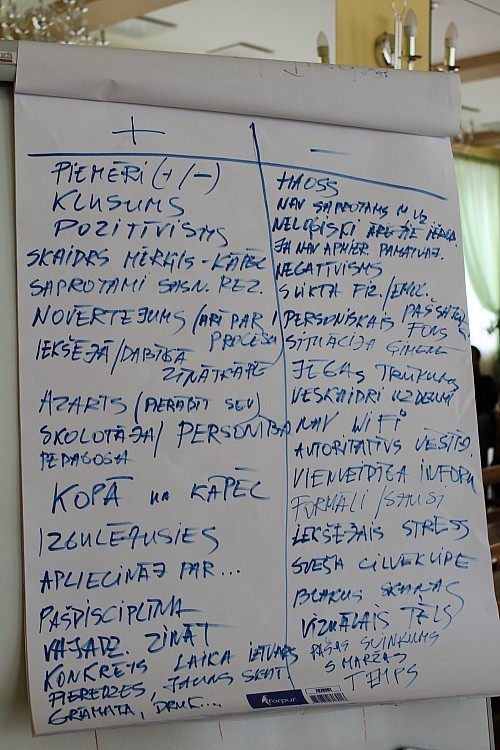 +
PIEMĒRI (+/-)
KLUSUMS
POZITĪVISMS
SKAIDRS MĒRĶIS - KĀPĒC
SAPROTAMI SASN. REZ.
NOVĒRTĒJUMS (ARĪ PAR
PROCESU
IEKŠĒJĀ/DABĪGĀ
ZINĀTKĀRE
AZARTS (PIERĀDĪT SEV)
SKOLOTĀJA/ PERSONĪBA
PEDAGOGA
KOPĀ un KĀPĒC
IZGULĒJUSIES
APLIECINĀJ PAR...
PAŠDISCIPLĪNA
VAJADZ. ZINĀT
KONKRĒTS LAIKA IETVARS
PIEREDZES, JAUNS SKAT
GRĀMATA, DRAUG...
-
HAOSS
NAV SAPROTAMS
NELOĢISKI
JA NAV APHIER PAMATVAJ.
NEGATĪVISMS
SLIKTA FIZ./EMOC.
PERSONISKAIS PAŠSAJŪTA
FONS
SITUĀCIJA ĢIMENĒ
JĒGAS TRŪKUMS
NESKAIDRI UZDEVUMI
NAV WIFI
AUTORITATĪVS VĒSTĪJ.
VIENVEIDĪGA INFORM
FORMĀLI / SAUSI
IEKŠĒJAIS STRESS
SVEŠA CILVĒKI
BLAKUS SKAŅAS
VIZUĀLAIS TĒLS
PAŠAS SVINKUMS
SMARŽAS
TEMPS
forpus